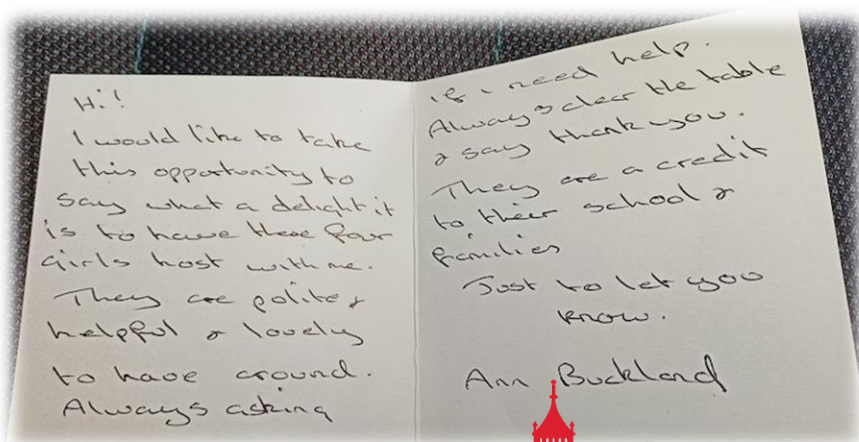 Hi!
I would like to take
this opportunity to
say what a delight it
is to have these four
girls host with me.
They are polite &
helpful & lovely
to have around.
Always asking
if i need help.
Always clear the table
& say thank you.
They are a credit
to their school &
families
Just to let you
know.
Ann Buckland